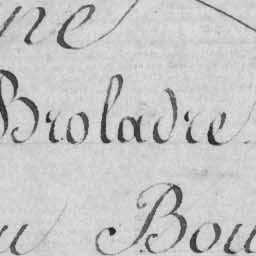 ne
Broladre
u Bou